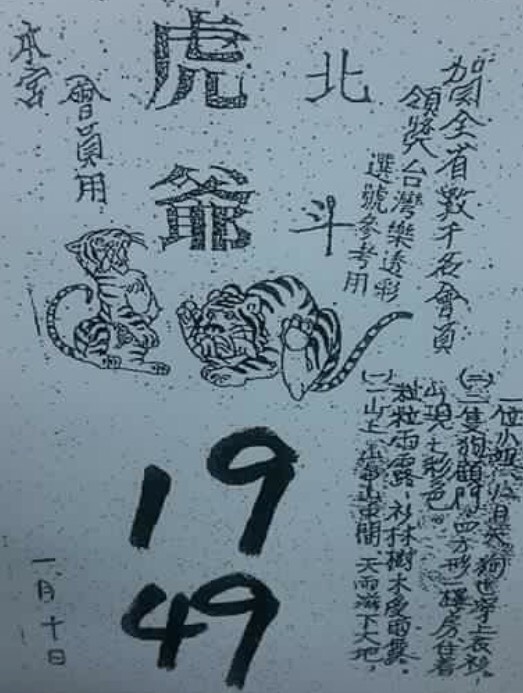 賀全省數千名會員
領獎台灣樂透彩
選號參考用
北斗
虎爺
會員用
本宮
(一)山上
天雨滋下大地,
粒粒雨露、杉林樹木受雨露。
出現七彩色。
(二)二隻狗顧門、四方形樓房住着
一位小姐
狗也穿上衣衫,
19
49
一月十日